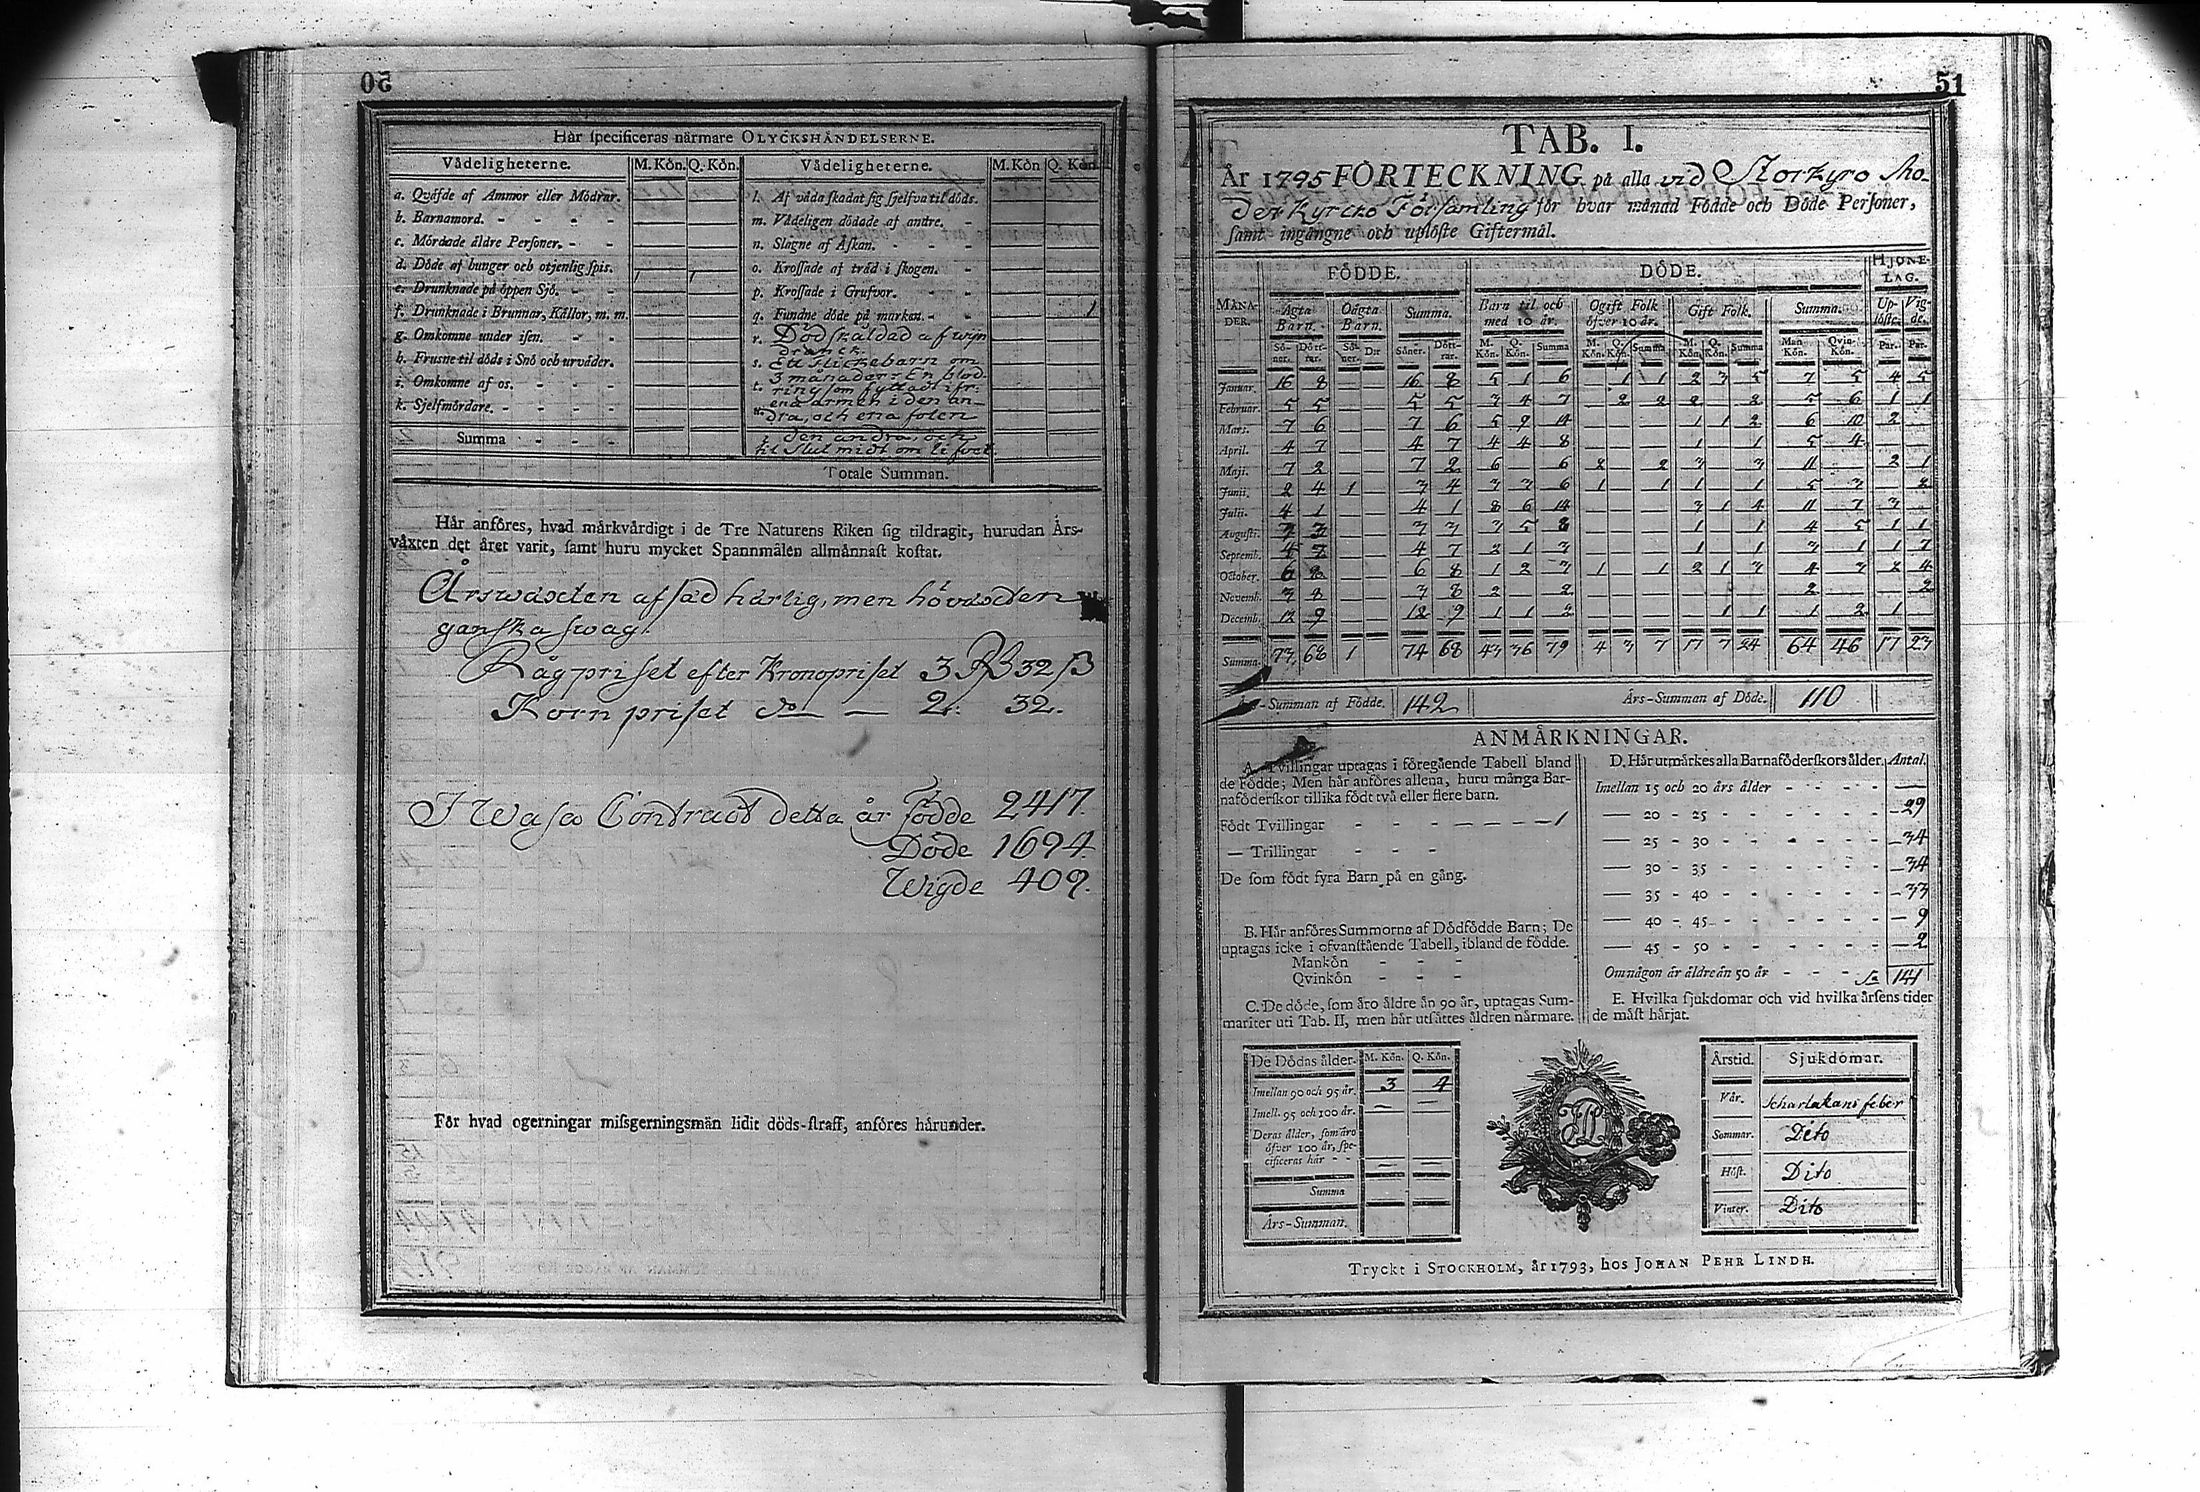 50
Här specificeras närmare OLYCKSHÄNDELSERNE.
Vådeligheterne. M. Kön. Q. Kön. Vådeligheterne. M. Kön Q. Kön
a. Qväfde af Ammor eller Mödrar.
b. Barnamord. - - - -
c. Mördade äldre Personer. - -
d. Döde af hunger och otjenlig spis. 1 1
e. Drunknade på öppen Sjö. - -
f. Drunknade i Brunnar, Källor, m. m.
g. Omkomne under isen. - -
h. Frusne til döds i Snö och urväder.
i. Omkomne af os. - - - -
k. Sjelfmördare. - - - -
Summa - - -
l. Af våda skadat sig sjelfva til döds.
m. Vådeligen dödade af andre. -
n. Slagne af Åskan. - - -
o. Krossade af träd i skogen. -
p. Krossade i Grufvor. - -
q. Fundne döde på marken. - - 1
r. Död skåldad af wijn
dranck
s. Ett Flickebarn om
3 månader En blod
t. ring som fyttadt ifr:
ena armen i den an-
u. dra, och ena foten
i den andra, och
til slut midt om lifvet.
Totale Summan.
Här anföres, hvad märkvärdigt i de Tre Naturens Riken sig tildragit, hurudan Års-
växten det året varit, samt huru mycket Spannmålen allmännast kostat.
Årswäxten af säd härlig, men höväxten
ganska swag.
Rågpriset efter Kronopriset 3 RB 32 ß
Korn priset do — 2: 32.
I Wasa Contract detta år födde 2417.
Döde 1694.
Wigde 409.
För hvad ogerningar missgerningsmän lidit döds-straff, anföres härunder.
51
TAB. I.
År 1795 FÖRTECKNING på alla vid Storkyro Mo-
derkyrcko Församling för hvar månad Födde och Döde Personer,
samt ingångne och uplöste Giftermål.
MÅNA-DER. FÖDDE. DÖDE. HJONE-LAG.
Ägta Barn. Oägta Barn. Summa. Barn til och med 10 år. Ogift Folk öfver 10 år. Gift Folk. Summa. Up-löste. Vig-de.
Sö-ner. Dött-rar. Sö-ner. D:r Söner. Dött-rar. M. Kön. Q. Kön. Summa M. Kön. Q. Kön. Summa M. Kön. Q. Kön. Summa Man Kön. Qvin-Kön. Par. Par.
Januar. 16 8 — — 16 8 5 1 6 — 1 1 2 3 5 7 5 4 5
Februar. 5 5 — — 5 5 3 4 7 — 2 2 2 — 2 5 6 1 1
Mars. 7 6 — — 7 6 5 9 14 — — — 1 1 2 6 10 2 —
April. 4 7 — — 4 7 4 4 8 — — — 1 — 1 5 4 — —
Maji. 7 2 — — 7 2 6 — 6 2 — 2 3 — 3 11 — 2 1
Junii. 2 4 1 — 3 4 3 3 6 1 — 1 1 — 1 5 3 — 2
Julii. 4 1 — — 4 1 8 6 14 — — — 3 1 4 11 7 3 —
Augusti. 3 3 — — 3 3 3 5 8 — — — 1 — 1 4 5 1 1
Septemb. 4 7 — — 4 7 2 1 3 — — — 1 — 1 3 1 1 7
October. 6 8 — — 6 8 1 2 3 1 — 1 2 1 3 4 3 2 4
Novemb. 3 8 — — 3 8 2 — 2 — — — — — — 2 — — 2
Decemb. 12 9 — — 12 9 1 1 2 — — — — 1 1 1 2 1 —
Summa. 73 68 1 74 68 43 36 79 4 3 7 17 7 24 64 46 17 23
Års-Summan af Födde. 142 Års-Summan af Döde. 110
ANMÄRKNINGAR.
A. Tvillingar uptagas i föregående Tabell bland
de Födde; Men här anföres allena, huru många Bar-
naföderskor tillika födt två eller flere barn.
Födt Tvillingar - - - — — — — 1
— Trillingar - - -
De som födt fyra Barn på en gång.
B. Här anföres Summorna af Dödfödde Barn; De
uptagas icke i ofvanstående Tabell, ibland de födde.
Mankön - - -
Qvinkön - - -
C. De döde, som äro äldre än 90 år, uptagas Sum-
mariter uti Tab. II, men här utsättes åldren närmare.
D. Här utmärkes alla Barnaföderskors ålder. Antal.
Imellan 15 och 20 års ålder - - - - - —
— 20 - 25 - - - - - - 29
— 25 - 30 - - - - - - 34
— 30 - 35 - - - - - - 34
— 35 - 40 - - - - - - 33
— 40 - 45 - - - - - - 9
— 45 - 50 - - - - - - 2
Om någon är äldre än 50 år - - - Sa 141
E. Hvilka sjukdomar och vid hvilka årsens tider
de mäst härjat.
De Dödas ålder. M. Kön. Q. Kön.
Imellan 90 och 95 år. 3 4
Imell. 95 och 100 år. — —
Deras ålder, som äro
öfver 100 år, spe-
cificeras här - - — —
Summa
Års-Summan.
Årstid. Sjukdomar.
Vår. Scharlakans feber
Sommar. Dito
Höst. Dito
Vinter. Dito
Tryckt i STOCKHOLM, år 1793, hos JOHAN PEHR LINDH.